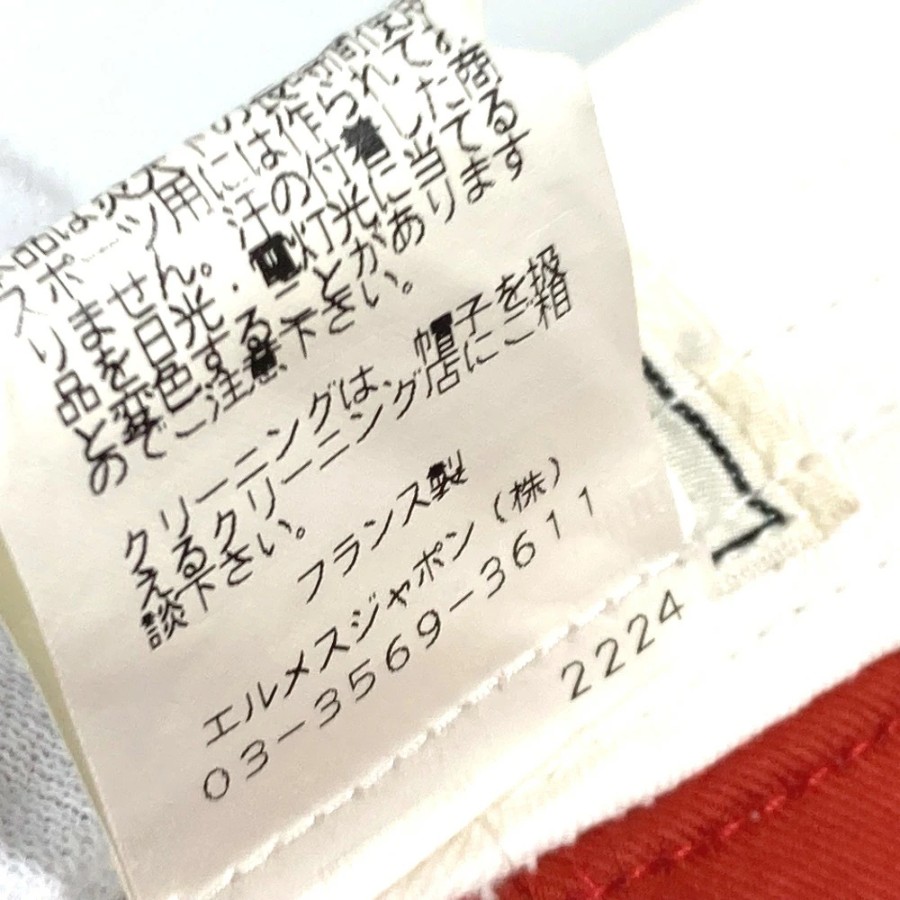 スポーツ用には作られて
りません。汗の付着した商
品を日光・電灯光に当てる
と変色することがあります
のでご注意下さい。
クリーニングは、帽子を扱
えるクリーニング店にご相
談下さい。
フランス製
エルメスジャポン(株)
03-3569-3611
2224